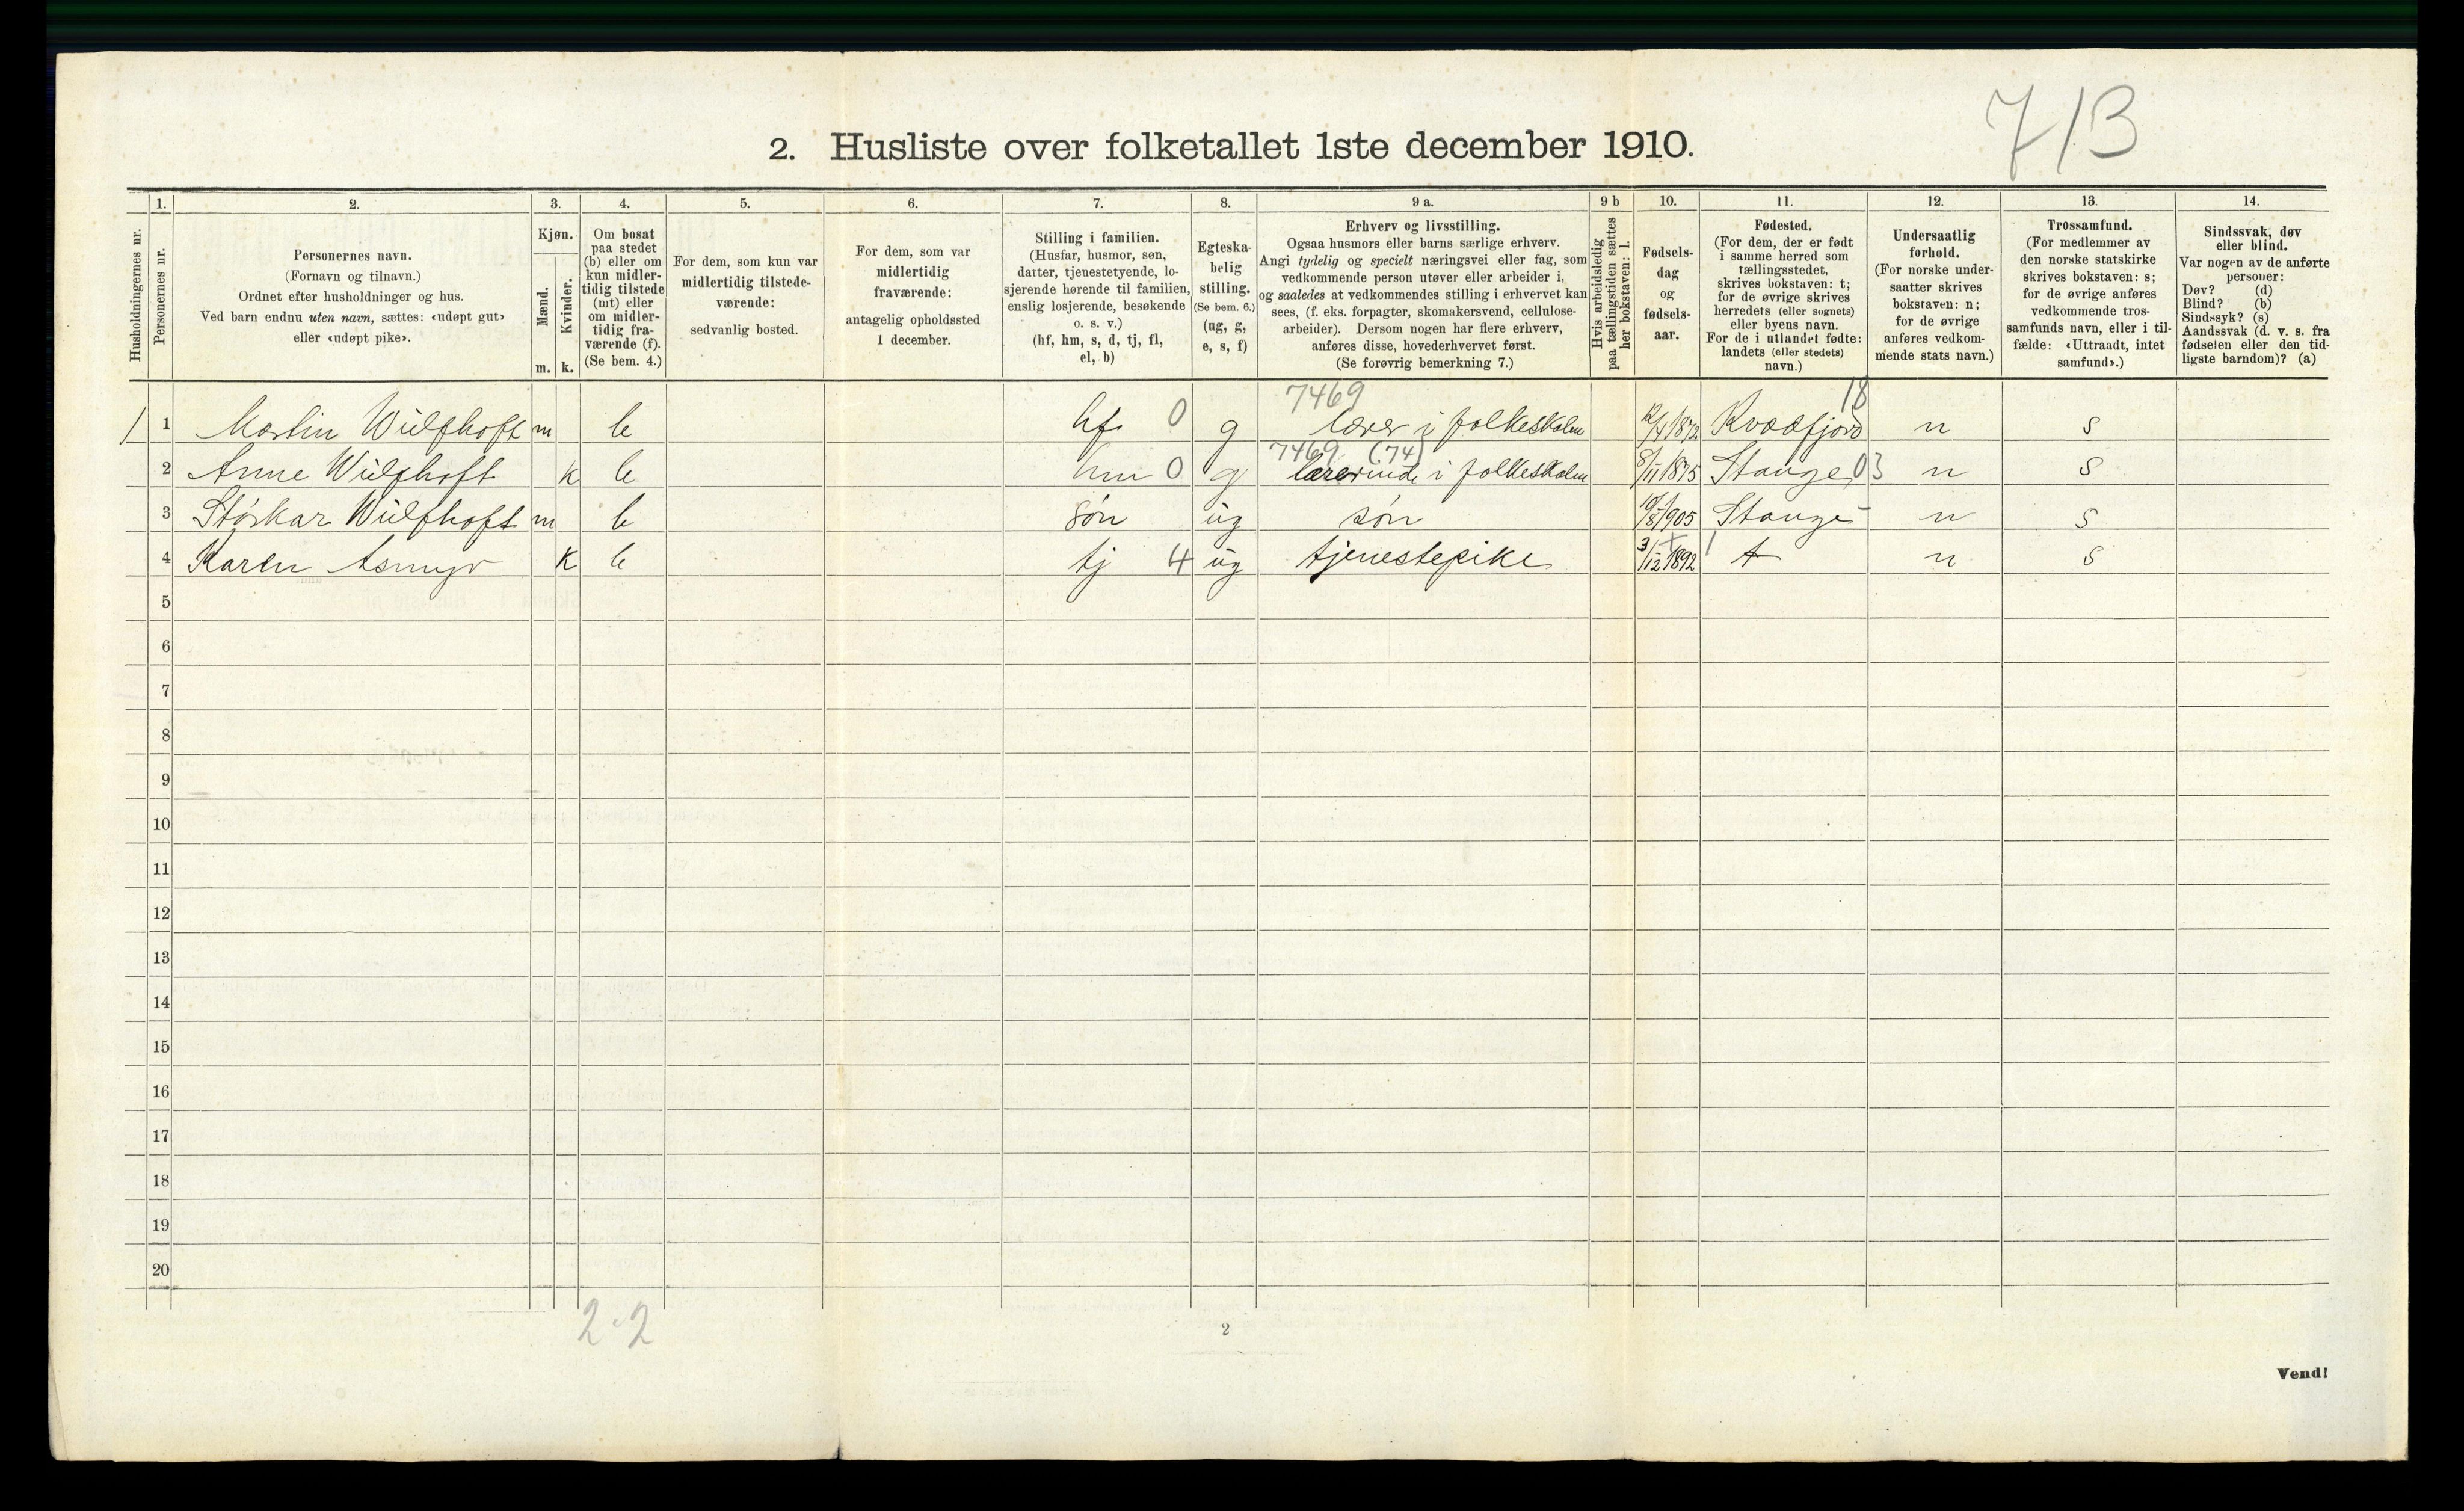 713
2. Husliste over folketallet 1ste december 1910.
Husholdningernes nr.
1. Personernes nr.
2. Personernes navn.
(Fornavn og tilnavn.)
Ordnet efter husholdninger og hus.
Ved barn endnu uten navn, sættes: «udøpt gut»
eller «udøpt pike».
3. Kjøn.
Mænd. m.
Kvinder. k.
4. Om bosat
paa stedet
(b) eller om
kun midler-
tidig tilstede
(mt) eller
om midler-
tidig fra-
værende (f).
(Se bem. 4.)
5. For dem, som kun var
midlertidig tilstede-
værende:
sedvanlig bosted.
6. For dem, som var
midlertidig
fraværende:
antagelig opholdssted
1 december.
7. Stilling i familien.
(Husfar, husmor, søn,
datter, tjenestetyende, lo-
sjerende hørende til familien,
enslig losjerende, besøkende
o. s. v.)
(hf, hm, s, d, tj, fl,
el, b)
8. Egteska-
belig
stilling.
(Se bem. 6.)
(ug, g,
e, s, f)
9 a. Erhverv og livsstilling.
Ogsaa husmors eller barns særlige erhverv.
Angi tydelig og specielt næringsvei eller fag, som
vedkommende person utøver eller arbeider i,
og saaledes at vedkommendes stilling i erhvervet kan
sees, (f. eks. forpagter, skomakersvend, cellulose-
arbeider). Dersom nogen har flere erhverv,
anføres disse, hovederhvervet først.
(Se forøvrig bemerkning 7.)
9 b Hvis arbeidsledig
paa tællingstiden sættes
her bokstaven: l.
10. Fødsels-
dag
og
fødsels-
aar.
11. Fødested.
(For dem, der er født
i samme herred som
tællingsstedet,
skrives bokstaven: t;
for de øvrige skrives
herredets (eller sognets)
eller byens navn.
For de i utlandet fødte:
landets (eller stedets)
navn.)
12. Undersaatlig
forhold.
(For norske under-
saatter skrives
bokstaven: n;
for de øvrige
anføres vedkom-
mende stats navn.)
13. Trossamfund.
(For medlemmer av
den norske statskirke
skrives bokstaven: s;
for de øvrige anføres
vedkommende tros-
samfunds navn, eller i til-
fælde: «Uttraadt, intet
samfund».)
14. Sindssvak, døv
eller blind.
Var nogen av de anførte
personer:
Døv? (d)
Blind? (b)
Sindssyk? (s)
Aandssvak (d. v. s. fra
fødselen eller den tid-
ligste barndom)? (a)
7469 18
1 1 Martin Wülfhoft m b hf 0 g lærer i folkeskolen 12/4 1872 Kvædfjord n s
7469 (74)
2 Anne Wülfhoft k b hm 0 g lærerinde i folkeskolen 8/11 1875 Stange 03 n s
3 Stórkar Wülfhoft m b søn ug søn 10/8 1905 Stange - n s
4 Karen k b tj 4 ug tjenestepike 3/12 1892 t n s
5
6
7
8
9
10
11
12
13
14
15
16
17
18
19
20
2-2
2
Vend!